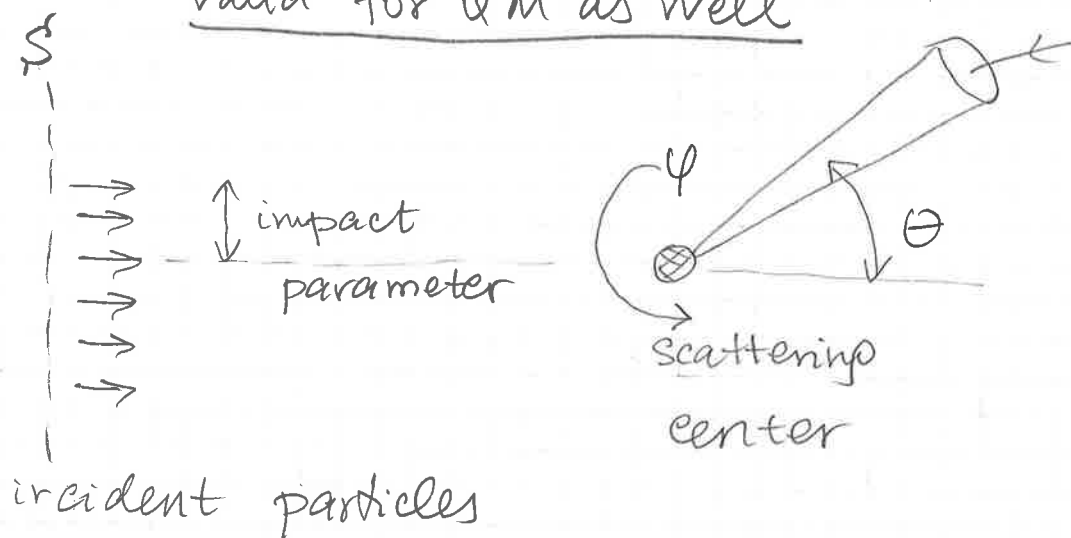 valid for QM as well
S
impact
parameter
φ
θ
scattering
center
incident particles